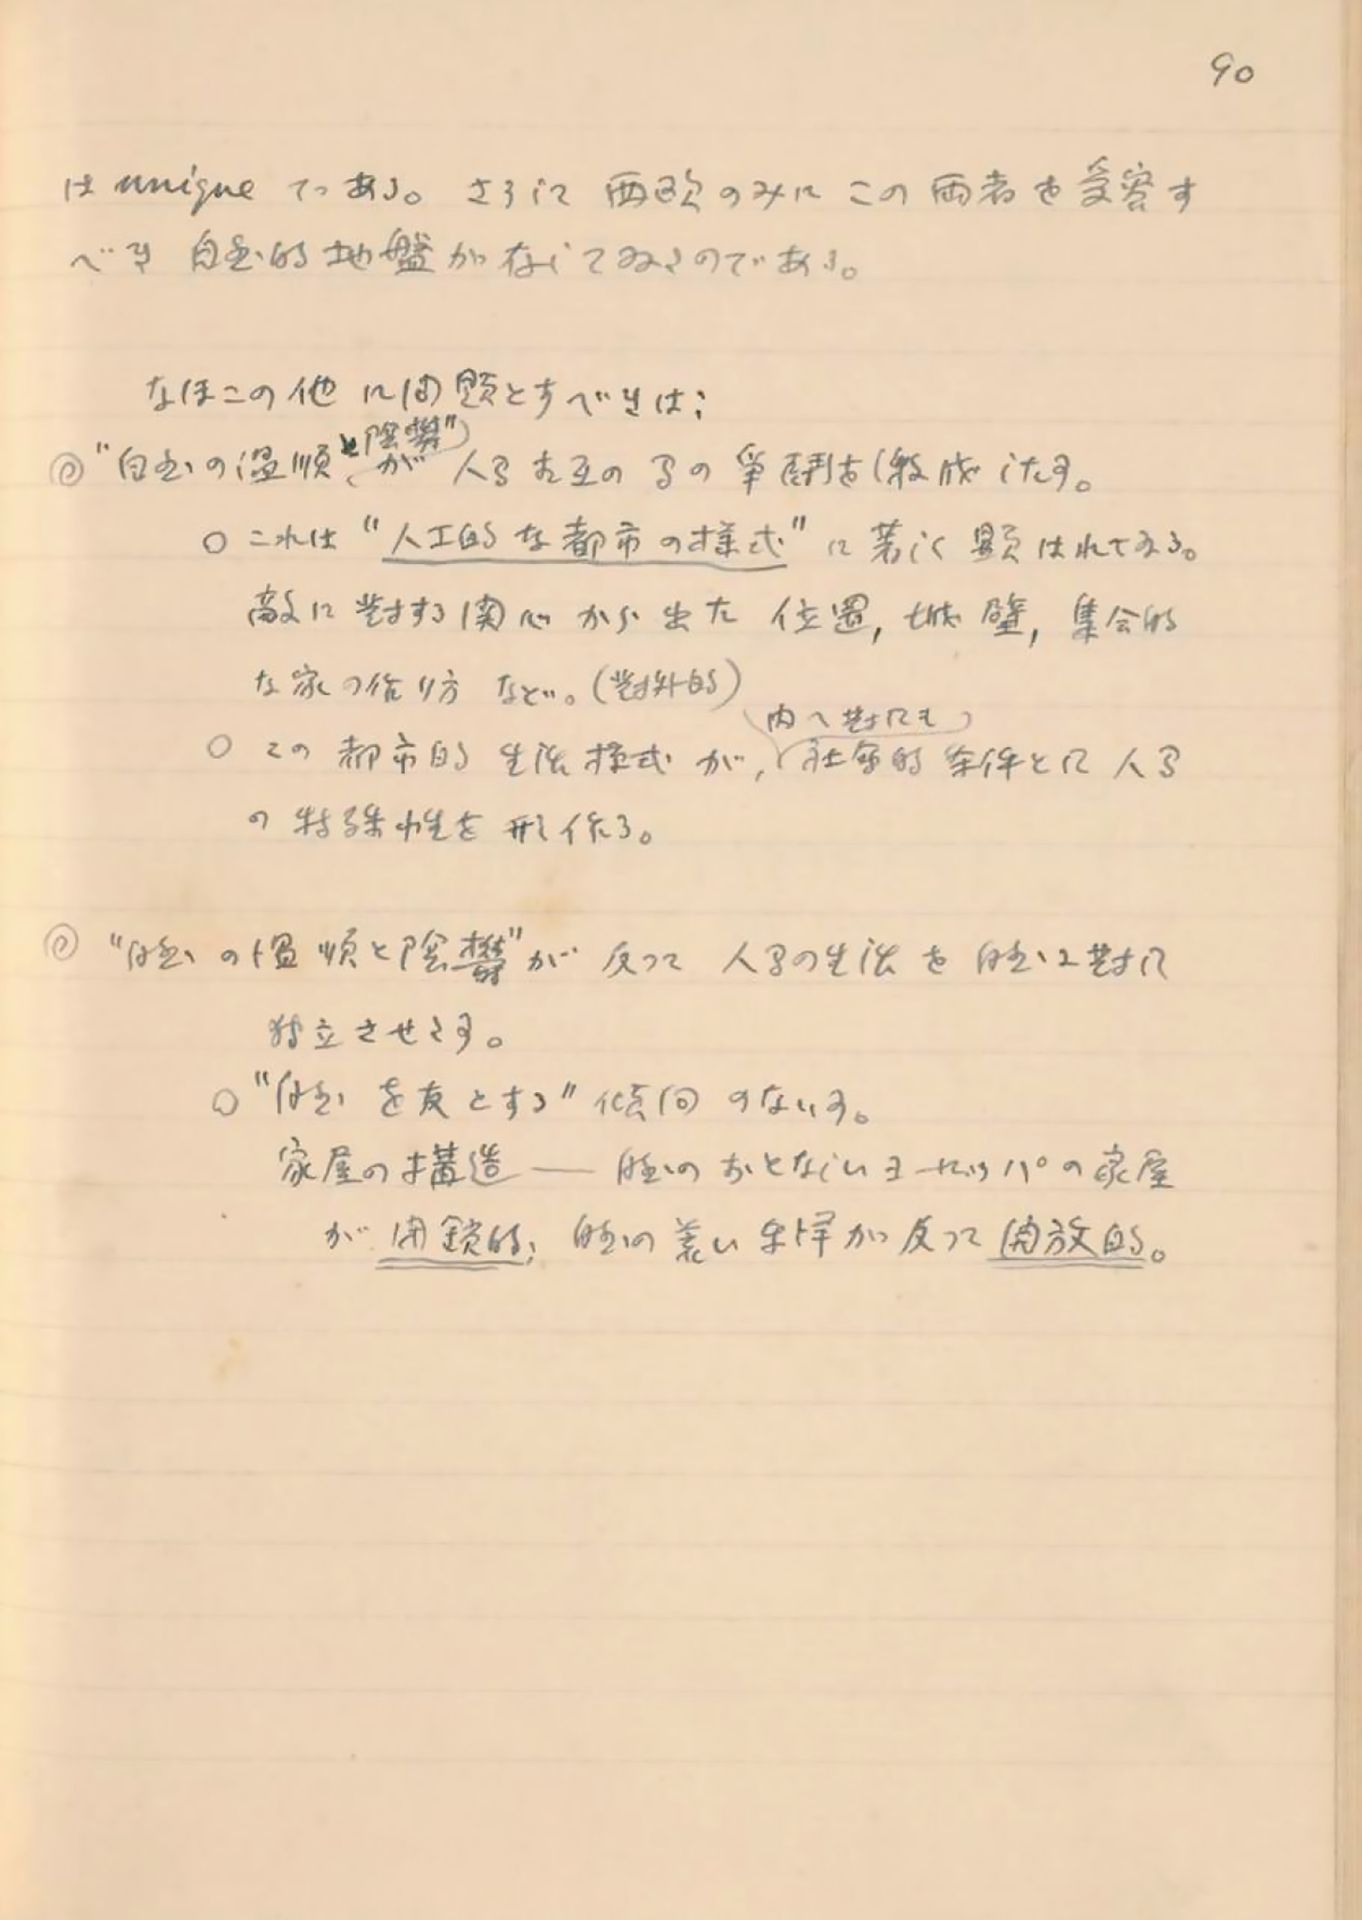 90
は unique である。さらに 西欧のみに この両者を受容す
べき 自然的地盤が存してゐるのである。
なほこの他に問題とすべきは；
と陰鬱"
◎"自然の温順 が 人間相互の間の争闘を激成した事。
○ これは "人工的な都市の様式" に著しく顕はれてゐる。
敵に対する関心から出た 位置, 城壁, 集合的
な家の作り方 など。(對外的)
内へ對しても
○ この都市的生活様式が, 社會的条件として人間
の特殊性を形作る。
◎ "自然の温順と陰鬱"が 反って 人間の生活を自然に對して
独立させる事。
○ "自然を友とする" 傾向のない事。
家屋の構造 —— 自然のおとなしいヨーロッパの家屋
が 閉鎖的, 自然の荒い 東洋が 反って 開放的。